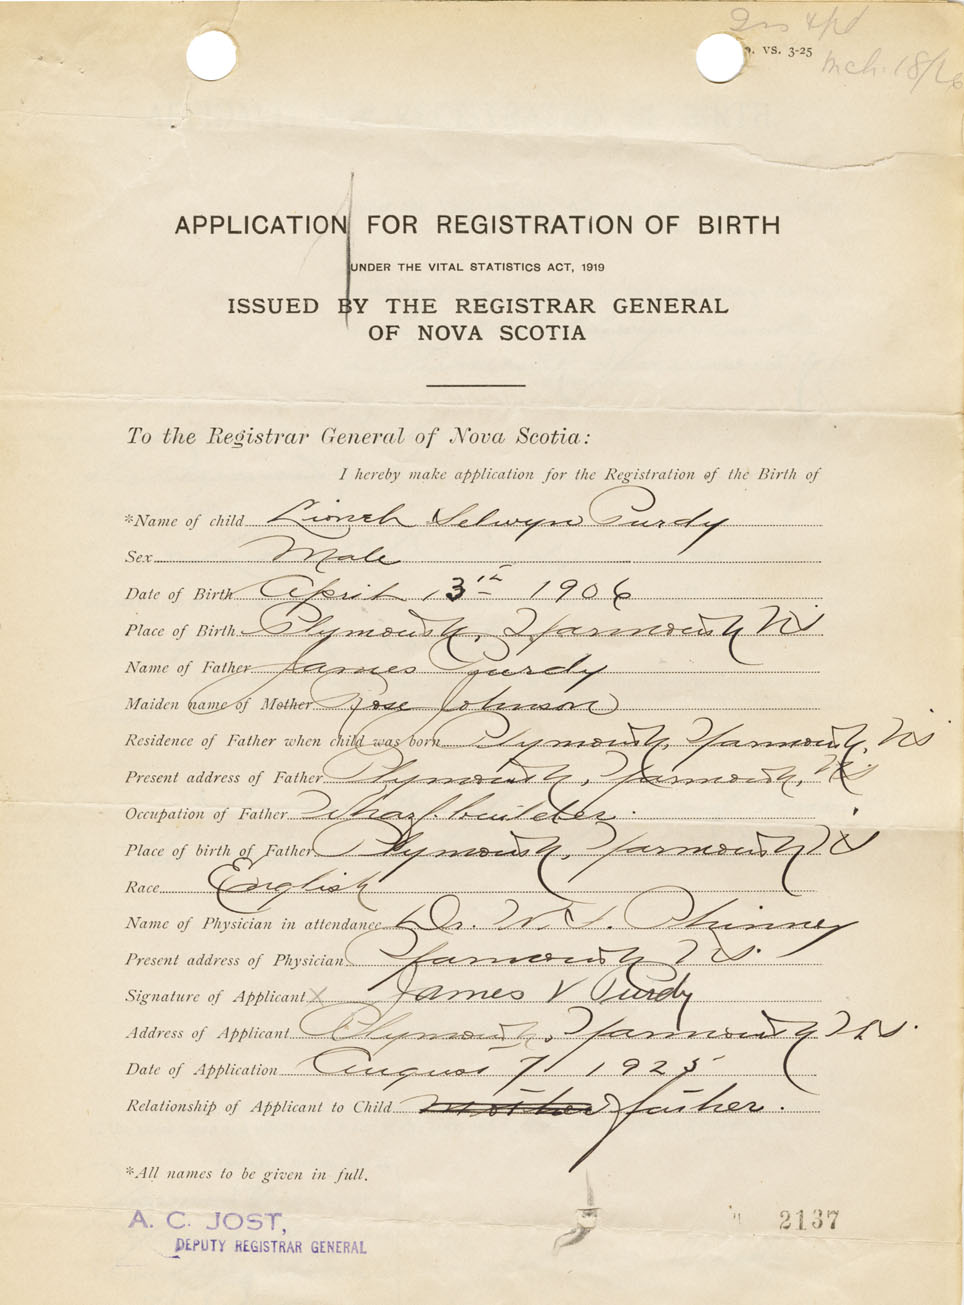 Ins & pd
o. VS. 3-25
Mch. 18/26
APPLICATION FOR REGISTRATION OF BIRTH
UNDER THE VITAL STATISTICS ACT, 1919
ISSUED BY THE REGISTRAR GENERAL
OF NOVA SCOTIA
To the Registrar General of Nova Scotia:
I hereby make application for the Registration of the Birth of
*Name of child Lionel Selwyn Purdy
Sex Male
Date of Birth April 13th 1906
Place of Birth Plymouth, Yarmouth NS
Name of Father James Purdy
Maiden name of Mother Rose Johnson
Residence of Father when child was born Plymouth, Yarmouth, NS
Present address of Father Plymouth, Yarmouth, NS
Occupation of Father Wharf builder.
Place of birth of Father Plymouth, Yarmouth NS
Race English
Name of Physician in attendance Dr. W. S. Phinney
Present address of Physician Yarmouth NS.
Signature of Applicant X James V Purdy
Address of Applicant Plymouth, Yarmouth NS.
Date of Application August 7 1925
Relationship of Applicant to Child mother father.
*All names to be given in full.
A. C. JOST,
DEPUTY REGISTRAR GENERAL
2137